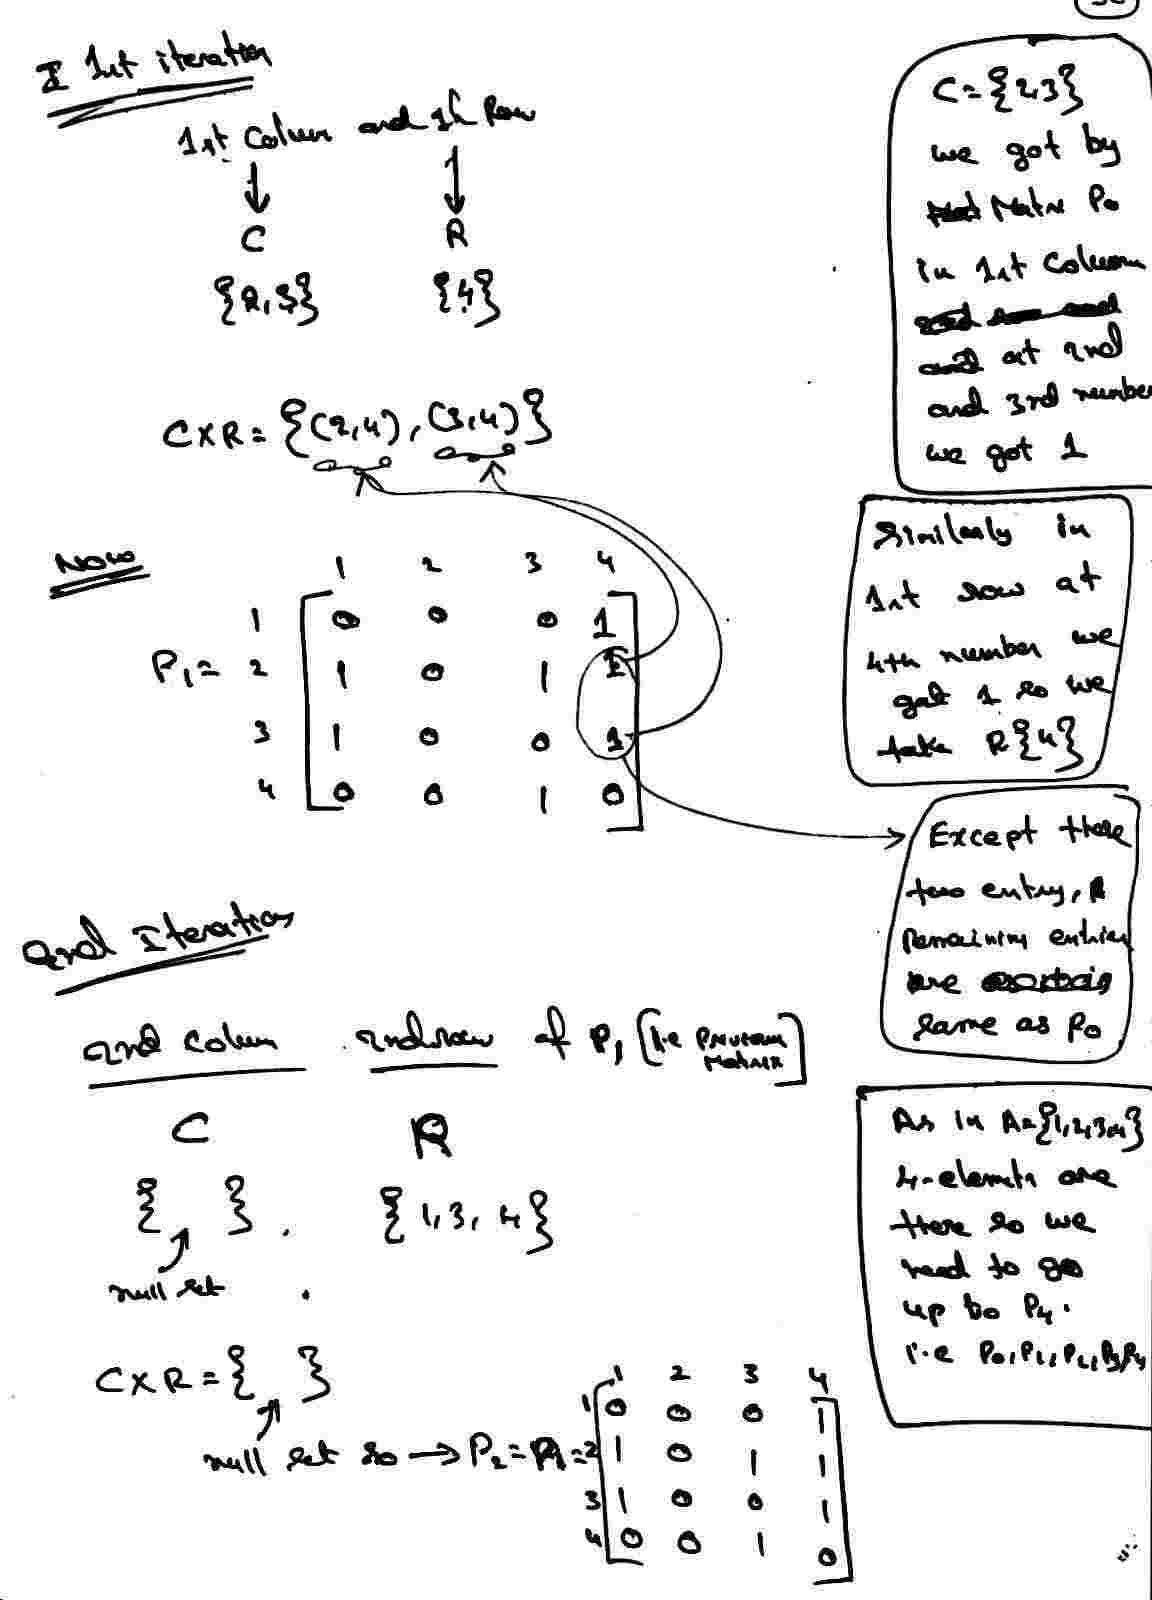 I 1st iteration
1st Column and 1st Row
C R
{2,3} {4}
C×R = {(2,4), (3,4)}
Now
1 2 3 4
1 0 0 0 1
P₁ = 2 1 0 1 1
3 1 0 0 1
4 0 0 1 0
2nd Iteration
2nd Colum 2nd row of P₁ [i.e Matrix]
C R
{ } . {1,3,4}
null set
C×R = { }
null set so → P₂ = P₁ =
1 2 3 4
1 0 0 0 1
2 1 0 1 1
3 1 0 0 1
4 0 0 1 0
C = {2,3}
we got by
Matrix P₀
in 1st Column
at 2nd
and 3rd number
we got 1
Similarly in
1st row at
4th number we
got 1 so we
take R{4}
Except these
two entry,
remaining entries
are
same as P₀
As in A={1,2,3,4}
4-elements are
there so we
need to go
up to P₄.
i.e P₀,P₁,P₂,P₃,P₄